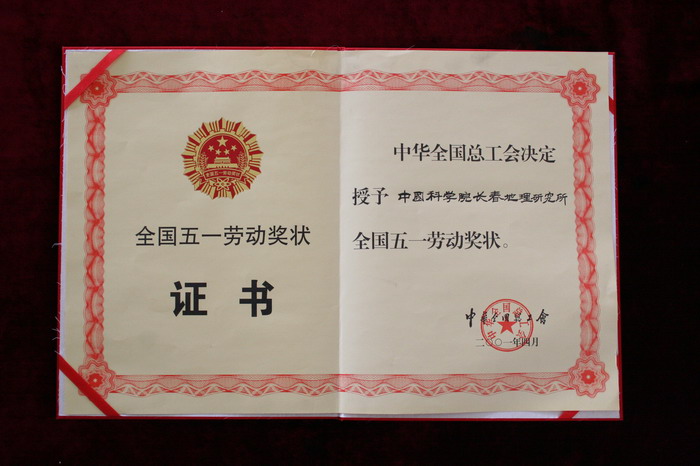 全国五一劳动奖状
证书
中华全国总工会决定
授予 中国科学院长春地理研究所
全国五一劳动奖状。
中华全国总工会
二〇〇一年四月